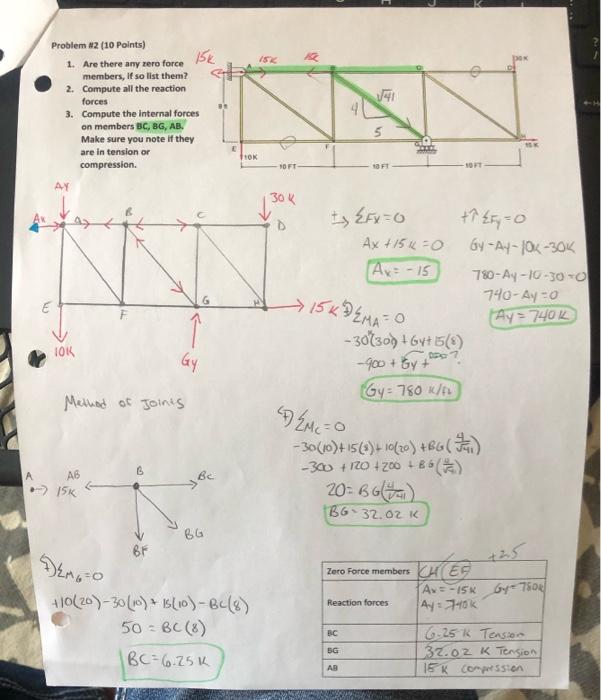 Problem #2 (10 Points)
1. Are there any zero force
members, if so list them?
2. Compute all the reaction
forces
3. Compute the internal forces
on members BC, BG, AB.
Make sure you note if they
are in tension or
compression.
15k
15k
A
D
30K
√41
4
5
8 ft
E
F
G
H
10K
15 K
10 FT
10 FT
10 FT
AY
Ax
B
C
30 K
D
E
F
G
H
15K
10K
Gy
+→ ΣFx=0
Ax +15k =0
Ax = -15
+↑ ΣFy=0
Gy -Ay-10k-30k
780-Ay-10-30=0
740-Ay=0
Ay=740K
ΣMA=0
-30(30)+Gy+15(8)
-900 + Gy +
Gy= 780 K/ft
Method of Joints
A
15K
AB
B
BC
BG
BF
ΣMc=0
-30(10)+15(8)+10(20)+BG(4/√41)
-300 +120 +200 + BG(4/√41)
20= BG(4/√41)
BG= 32.02 K
ΣMG=0
+10(20)-30(10)+15(10)-BC(8)
50 = BC(8)
BC=6.25K
+2.5
Zero Force members CH EF
Reaction forces
Ax=-15K Gy=780K
Ay=740K
BC 6.25 K Tension
BG 32.02 K Tension
AB 15 K compression